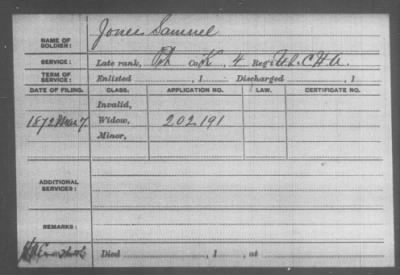 NAME OF SOLDIER: Jones Samuel
SERVICE: Late rank, Pvt Co. K, 4 Reg't U.S.C.H.A.
TERM OF SERVICE: Enlisted , 1 Discharged , 1
DATE OF FILING. CLASS. APPLICATION NO. LAW. CERTIFICATE NO.
Invalid,
1872 Mar 7. Widow, 202191
Minor,
ADDITIONAL SERVICES:
REMARKS:
Died , 1 , at